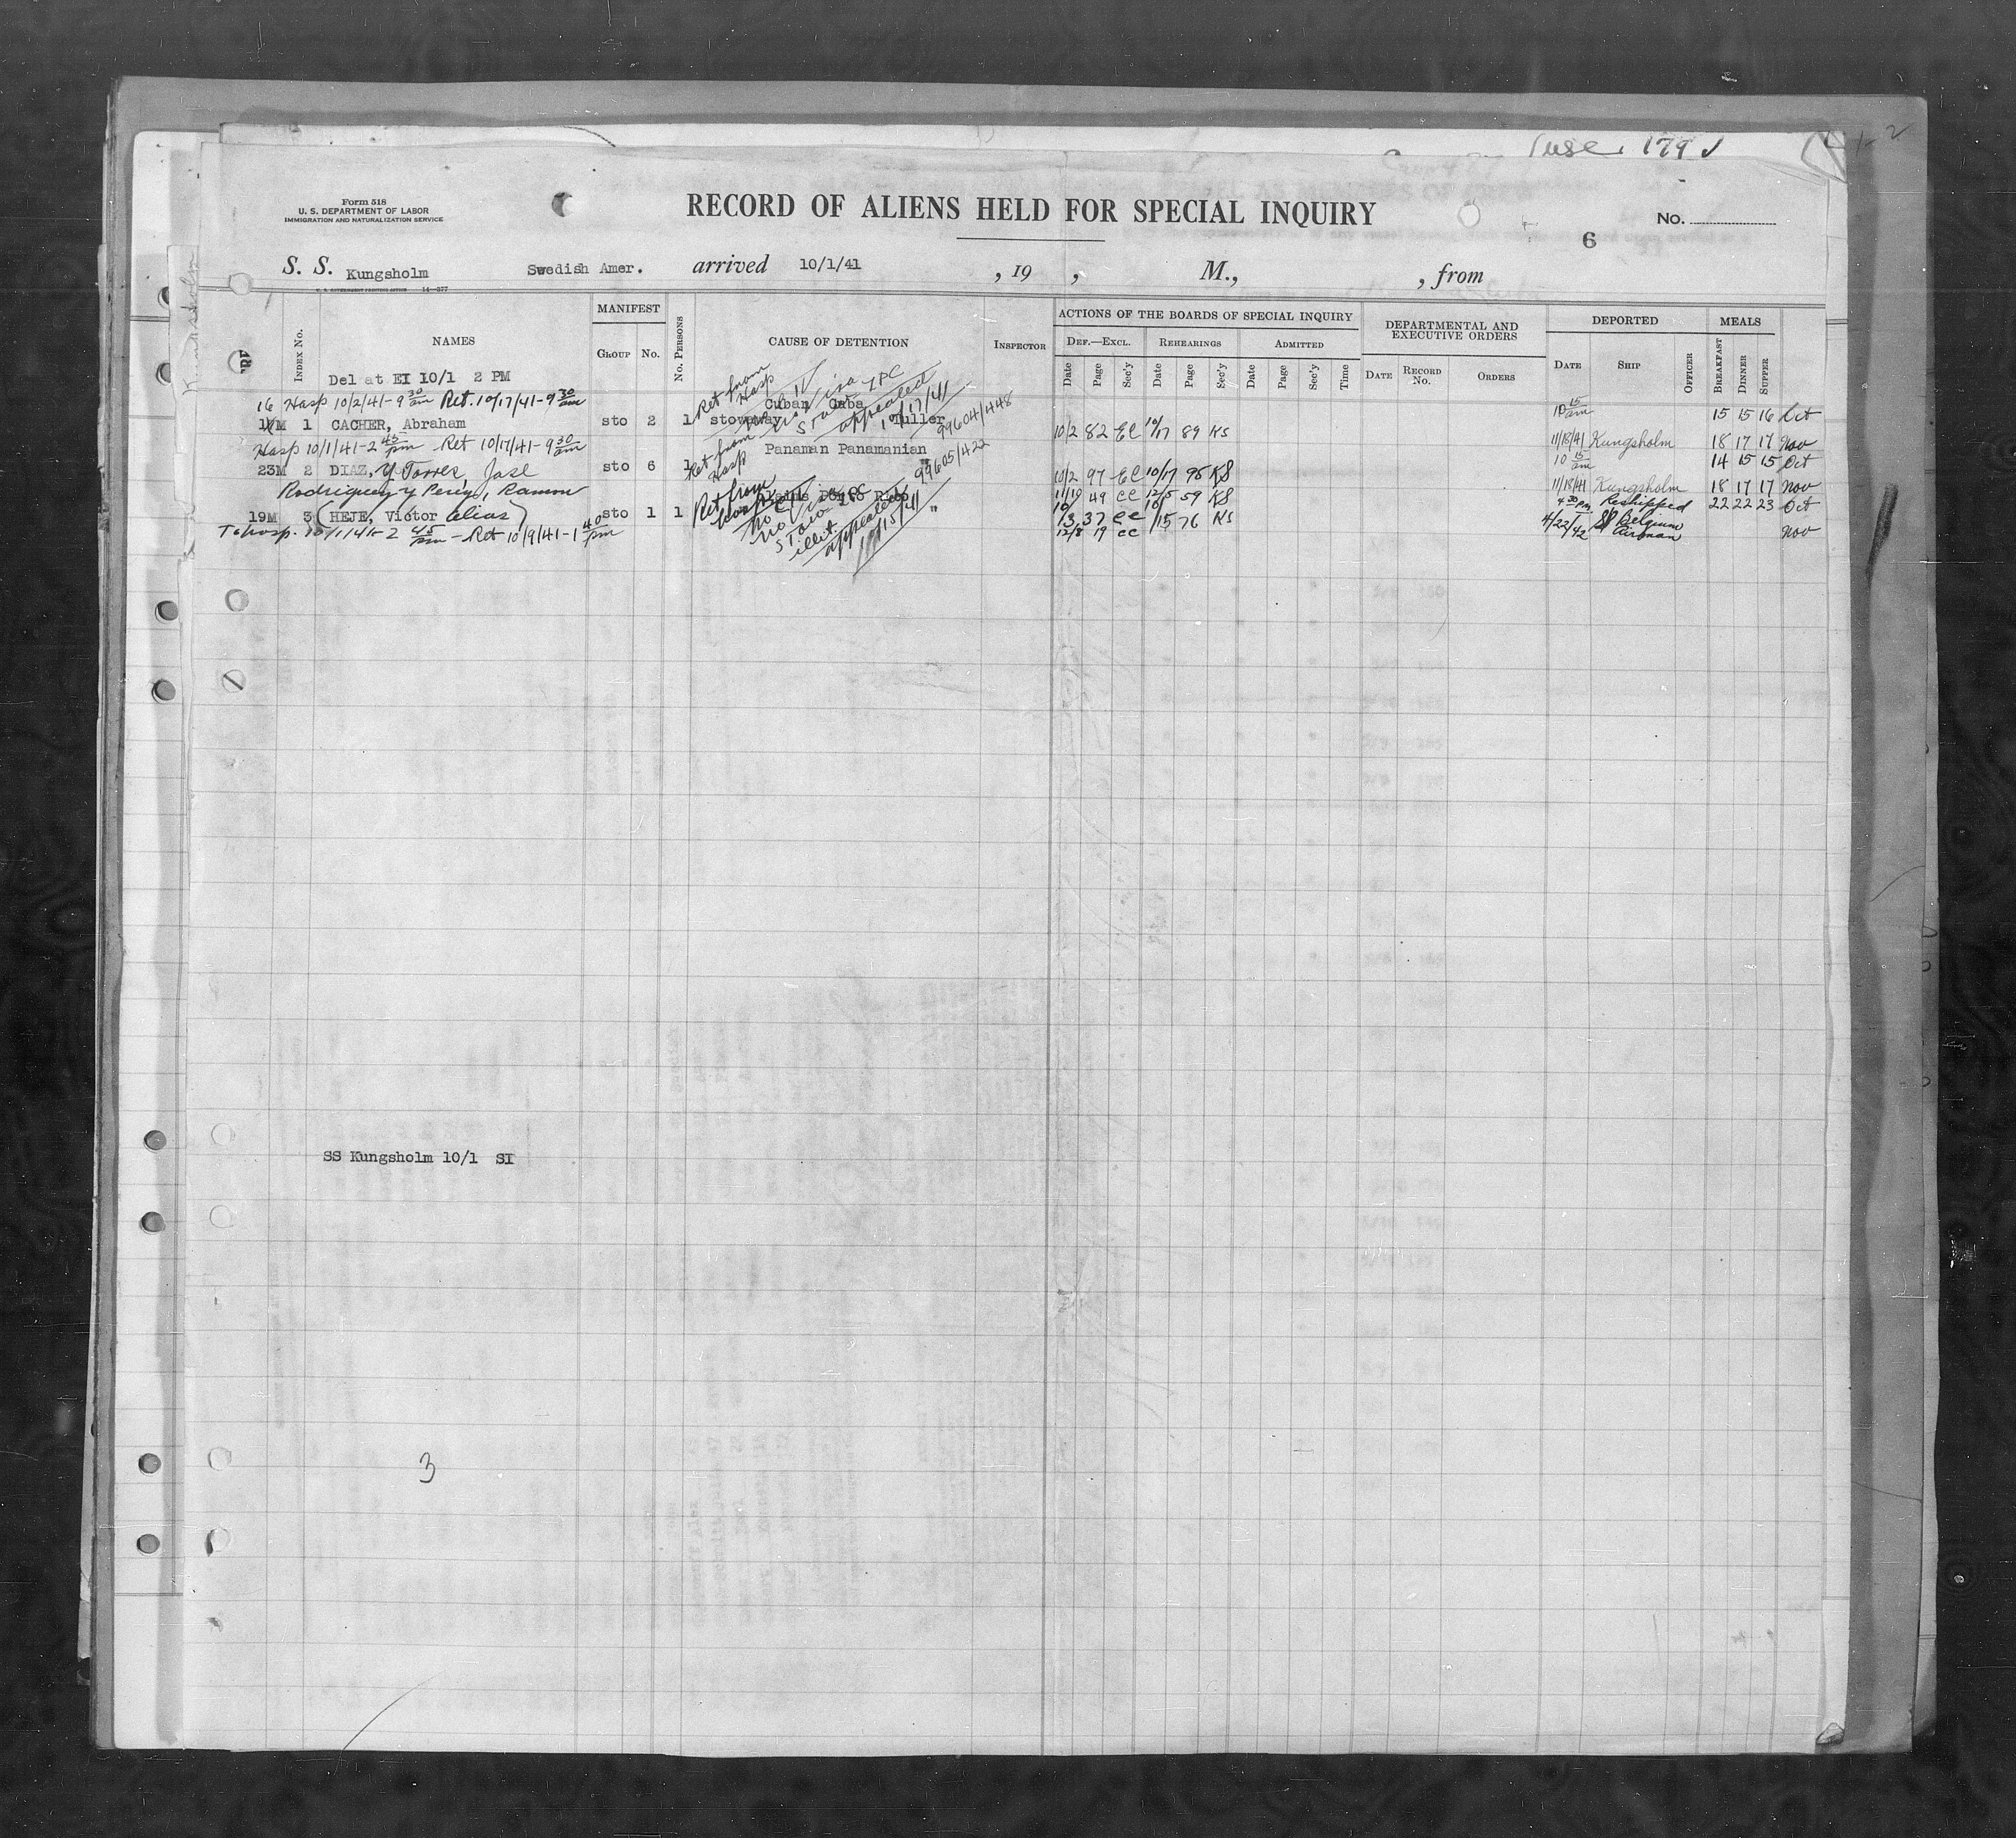 Form 518
U. S. DEPARTMENT OF LABOR
IMMIGRATION AND NATURALIZATION SERVICE
RECORD OF ALIENS HELD FOR SPECIAL INQUIRY
No.
6
S. S. Kungsholm Swedish Amer. arrived 10/1/41 , 19 , M., , from
MANIFEST
ACTIONS OF THE BOARDS OF SPECIAL INQUIRY
DEPARTMENTAL AND EXECUTIVE ORDERS
DEPORTED
MEALS
INDEX NO. NAMES GROUP NO. NO. PERSONS CAUSE OF DETENTION INSPECTOR
DEF.—EXCL. REHEARINGS ADMITTED
Date Page Sec'y Date Page Sec'y Date Page Sec'y Time DATE RECORD NO. ORDERS DATE SHIP OFFICER BREAKFAST DINNER SUPPER
Del at EI 10/1 2 PM
16 Hosp 10/2/41-9 30 am Ret. 10/17/41-9 30 am Ret from Hosp Cuban Cuba 10 15 am 15 15 16 Oct
M 1 CACHER, Abraham sto 2 1 stowaway Tuller appealed 10/17/41 99604/448 10/2 82 EC 10/17 89 KS
Hosp 10/1/41-2 45 pm Ret 10/17/41-9 30 am Ret from Hosp Panaman Panamanian 11/18/41 Kungsholm 18 17 17 Nov
23M 2 DIAZ, y Torres, Jose sto 6 1 " 99605/422 10/2 97 EC 10/17 98 KS 10 15 am 14 15 15 Oct
Rodriguez y Perez, Ramon Ret from Hosp Claims Porto Rico 11/19 49 CC 12/5 59 KS 11/18/41 Kungsholm 18 17 17 Nov
19M 3 (HEJE, Victor alias) sto 1 1 " 10/13 37 CC 10/15 76 KS 4 30 PM Reshipped 22 22 23 Oct
To hosp. 10/1/41-2 45 pm - Ret 10/9/41-1 40 pm illit appealed 10/15/41 12/8 19 CC 4/22/42 SS Belgium Airman Nov
SS Kungsholm 10/1 SI
3